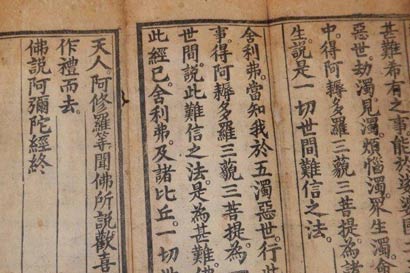 甚難希有之事能於娑婆國
惡世。劫濁見濁。煩惱濁。眾生濁。命
中得阿耨多羅三藐三菩提。為諸
生說是一切世間難信之法。
舍利弗。當知我於五濁惡世。行
事得阿耨多羅三藐三菩提。為
世間說此難信之法。是為甚難。佛
此經已。舍利弗。及諸比丘。一切
天人阿修羅等聞佛所說歡喜
作禮而去。
佛說阿彌陀經終